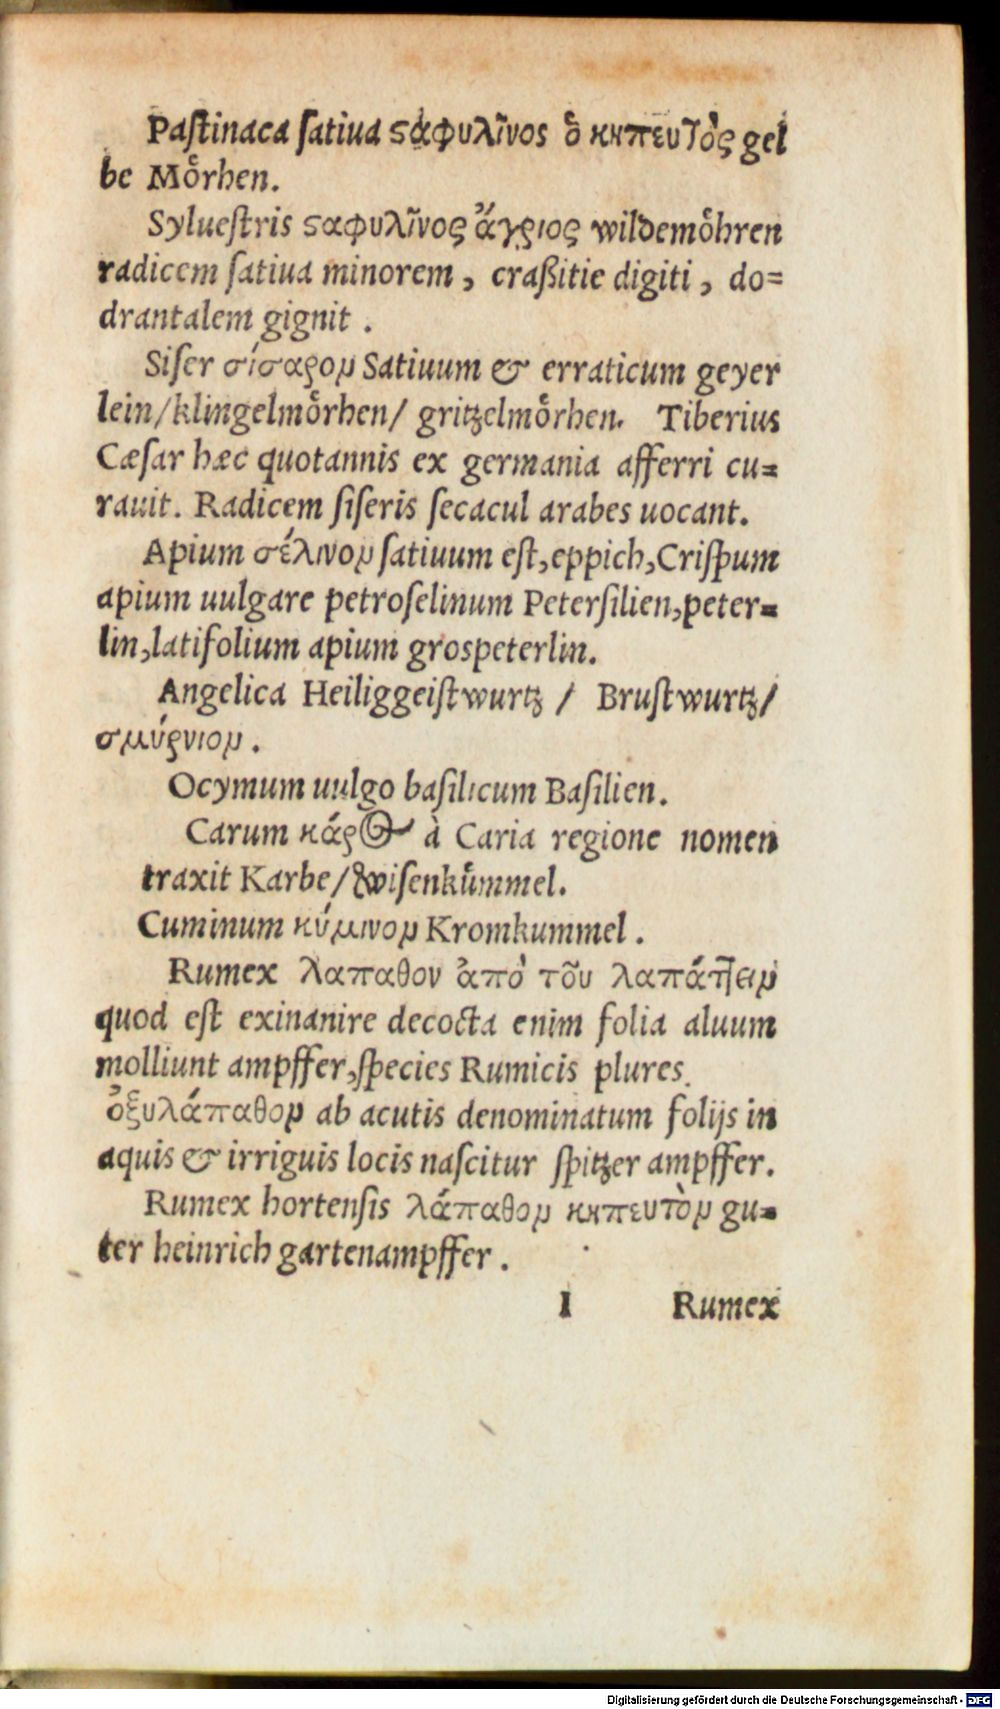 Paſtinaca ſatiua ϛάφυλῖνος ὁ κηπευτὸς gel
be Moͤrhen.
Sylueſtris ϛαφυλῖνος ἄγριος wildemoͤhren
radicem ſatiua minorem, craßitie digiti, do=
drantalem gignit.
Siſer σίσαρον Satiuum & erraticum geyer
lein/klingelmoͤrhen/ gritzelmoͤrhen. Tiberius
Cæſar hæc quotannis ex germania afferri cu=
rauit. Radicem ſiſeris ſecacul arabes uocant.
Apium σέλινον ſatiuum eſt, eppich, Criſpum
apium uulgare petroſelinum Peterſilien, peter=
lin, latifolium apium grospeterlin.
Angelica Heiliggeiſtwurtz / Bruſtwurtz/
σμύρνιον.
Ocymum uulgo baſilicum Baſilien.
Carum κάρος à Caria regione nomen
traxit Karbe/ wiſenkuͤmmel.
Cuminum κύμινον Kromkummel.
Rumex λαπαθον ἀπὸ τοῦ λαπάτ͂ειν
quod eſt exinanire decocta enim folia aluum
molliunt ampffer, ſpecies Rumicis plures.
ὀξυλάπαθον ab acutis denominatum folijs in
aquis & irriguis locis naſcitur ſpitzer ampffer.
Rumex hortenſis λάπαθον κηπευτὸν gu=
ter heinrich gartenampffer.
I Rumex
Digitalisierung gefördert durch die Deutsche Forschungsgemeinschaft - DFG